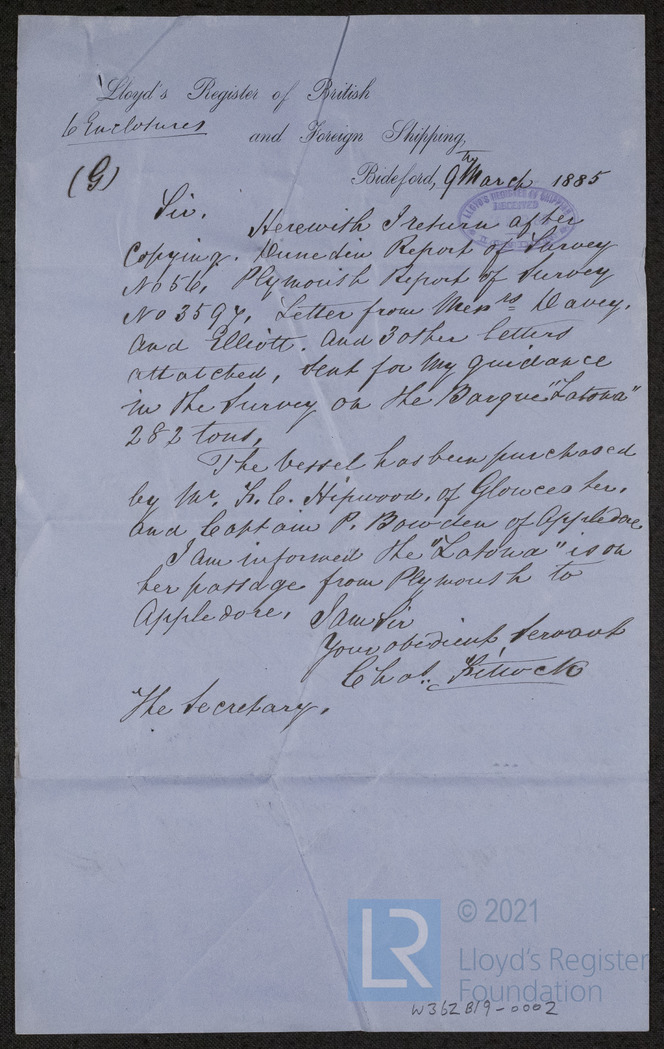 Lloyd's Register of British
6 Enclosures
and Foreign Shipping,
(G)
Bideford, 9th March 1885
LLOYD'S REGISTER OF SHIPPING
RECEIVED
Sir.
Herewith I return after
Copying. Dunedin Report of Survey
No 56, Plymouth Report of Survey
No 3594, Letter from Messrs Davey,
and Elliott. and 3 other letters
attatched, sent for my guidance
in the Survey on the Barque "Latona"
282 tons,
The vessel has been purchased
by Mr. K. C. Hipwood, of Gloucester,
and Captain P. Bowden of Appledore
I am informed the "Latona" is on
her passage from Plymouth to
Appledore, I am Sir
Your obedient Servant
Chas.
The Secretary,
LR
© 2021
Lloyd's Register
Foundation
W362819-0002